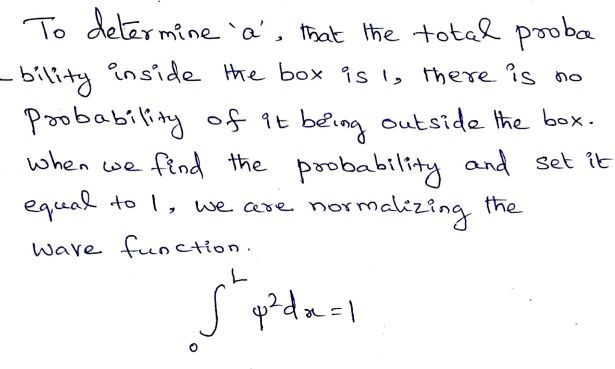 To determine 'a', that the total proba
-bility inside the box is 1, there is no
Probability of it being outside the box.
when we find the probability and set it
equal to 1, we are normalizing the
wave function.
∫₀ᴸ ψ²dx = 1